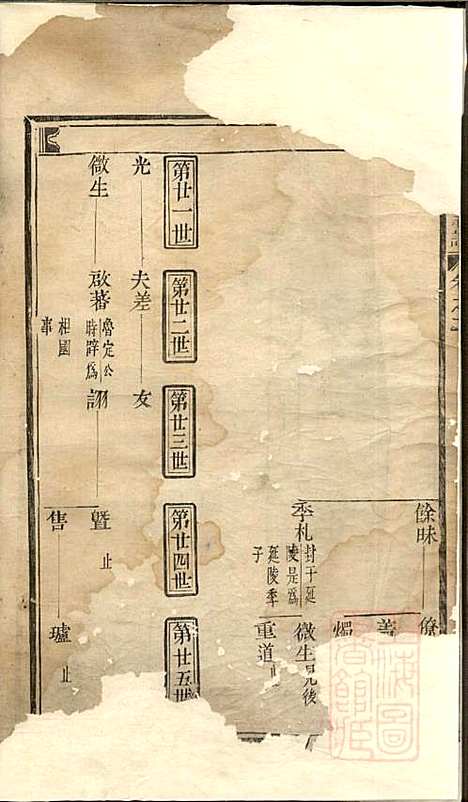 餘昧
僚
蓋
燭
季札
封于延
陵是為
延陵季
子
徵生
見後
重道
止
第廿一世
第廿二世
第廿三世
第廿四世
第廿五世
光
夫差
女
徵生
啟蕃
魯定公
時辭為
相國
事
詡
暨
止
售
瓐
止